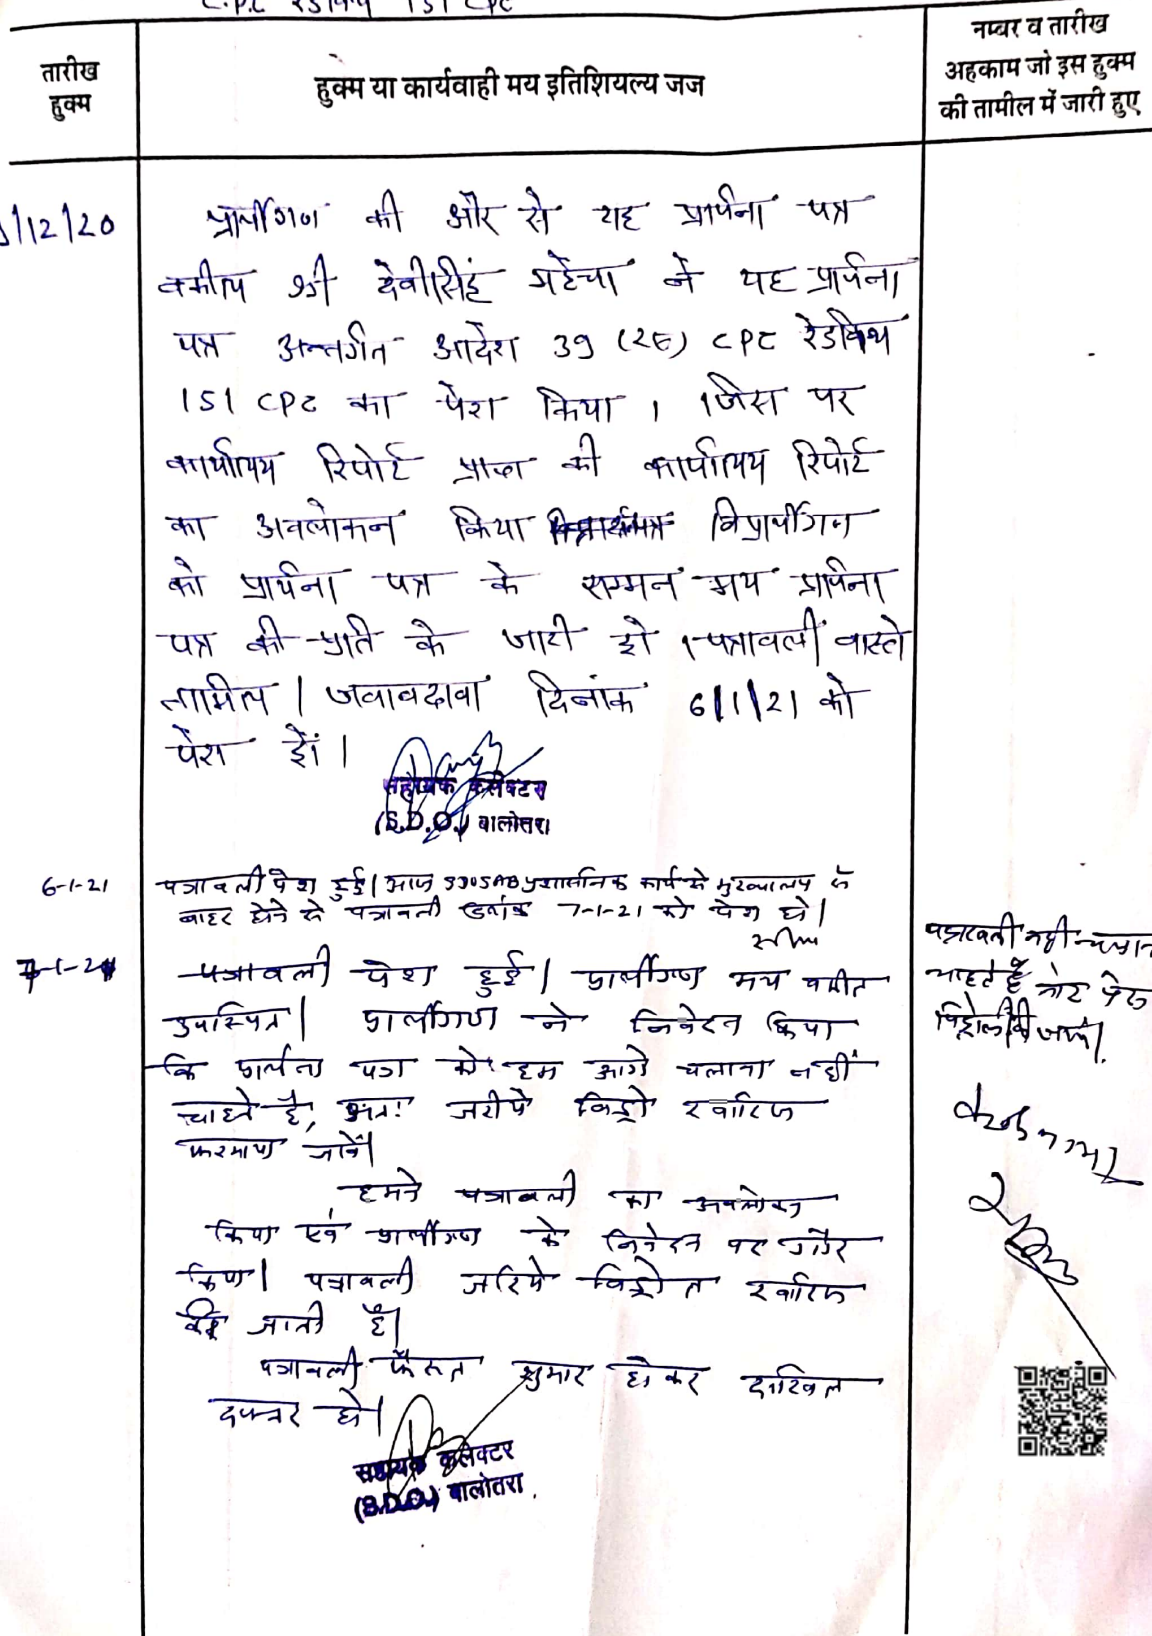 C.P.C रेडविथ 151 CPC
तारीख
हुक्म
हुक्म या कार्यवाही मय इतिशियल्य जज
नम्बर व तारीख
अहकाम जो इस हुक्म
की तामील में जारी हुए
/12/20
प्रार्थीगण की और से यह प्रार्थना पत्र
वकील श्री देवीसिंह महेचा ने यह प्रार्थना
पत्र अन्तर्गत आदेश 39 (2क) CPC रेडविथ
151 CPC का पेश किया । जिस पर
कार्यालय रिपोर्ट प्राप्त की कार्यालय रिपोर्ट
का अवलोकन किया विप्रार्थीगन
को प्रार्थना पत्र के सम्मन मय प्रार्थना
पत्र की प्रति के जारी हो । पत्रावली वास्ते
तामिल / जवाबदावा दिनांक 6/1/21 को
पेश हों ।
सहायक कलेक्टर
(S.D.O.) बालोतरा
6-1-21
पत्रावली पेश हुई। आज प्रशासनिक कार्य से मुख्यालय से
बाहर होने से पत्रावली दिनांक 7-1-21 को पेश हो।
7-1-21
पत्रावली पेश हुई। प्रार्थीगण मय वकील
उपस्थित। प्रार्थीगण ने निवेदन किया
कि प्रार्थना पत्र को हम आगे चलाना नहीं
चाहते है, अतः जरीये विड्रो खारिज
फरमाया जावें।
हमने पत्रावली का अवलोकन
किया एवं प्रार्थीगण के निवेदन पर गौर
किया। पत्रावली जरिये विड्रो खारिज
की जाती है।
पत्रावली फैसल शुमार होकर दाखिल
दफ्तर हो।
सहायक कलेक्टर
(S.D.O.) बालोतरा
पत्रावली नही चलाना
चाहते है